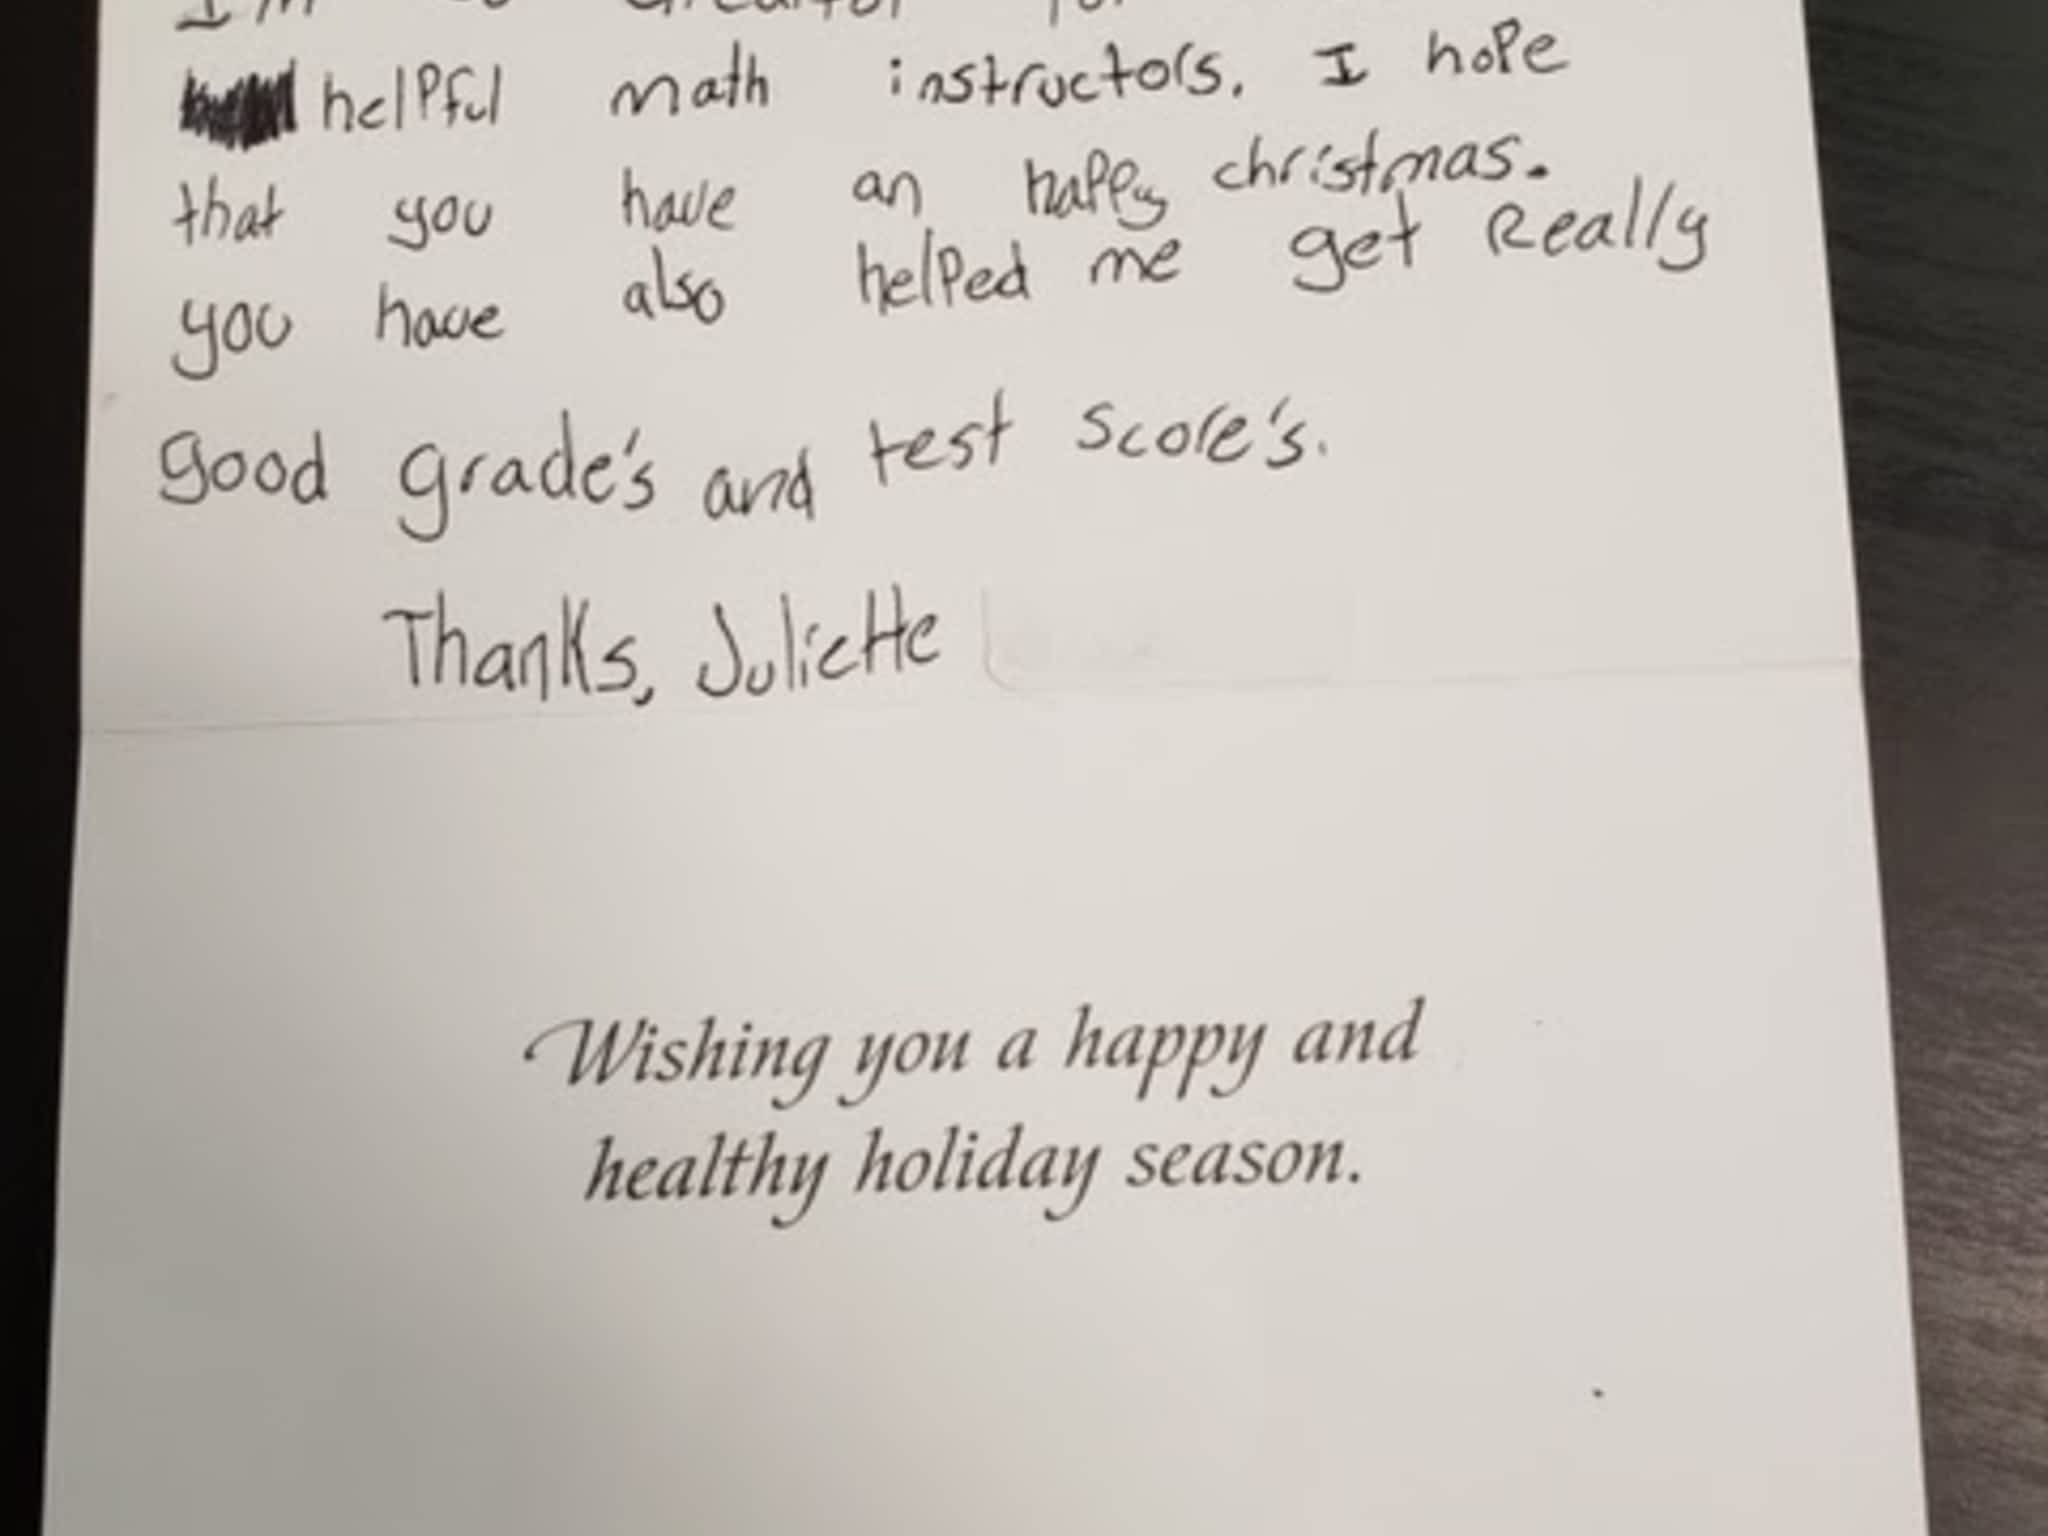 I'm so Greatful for
helpful math instructors. I hope
that you have an happy christmas.
you have also helped me get Really
good grade's and test score's.
Thanks, Juliette
Wishing you a happy and
healthy holiday season.